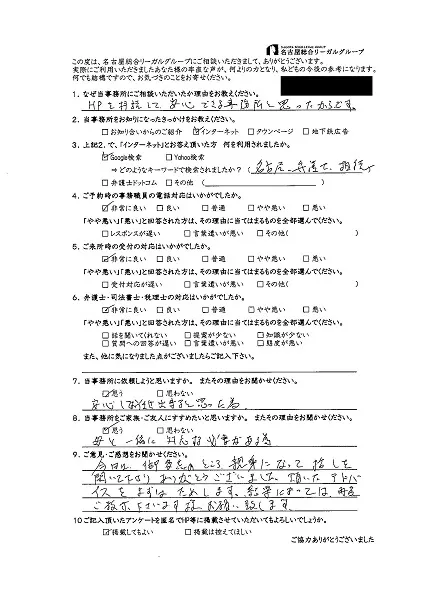 NAGOYA SOGO LEGAL GROUP
名古屋総合リーガルグループ
この度は、名古屋総合リーガルグループにご相談いただきまして、ありがとうございます。
実際にご利用いただきましたあなた様の率直な声が、何よりの力となり、私どもの今後の参考になります。
何でも結構ですので、お気づきのことをお寄せください。
1. なぜ当事務所にご相談いただいたか理由をお教えください。
HPを拝読して、安心できる事務所と思ったからです。
2. 当事務所をお知りになったきっかけをお教えください。
□お知り合いからのご紹介 ☑インターネット □タウンページ □地下鉄広告
3. 上記2.で、「インターネット」とお答え頂いた方 何を利用されましたか。
☑Google検索 □Yahoo検索
⇒どのようなキーワードで検索されましたか?(名古屋 弁護士 相続)
□弁護士ドットコム □その他 ( )
4. ご予約時の事務職員の電話対応はいかがでしたか。
☑非常に良い □良い □普通 □やや悪い □悪い
「やや悪い」「悪い」と回答された方は、その理由に当てはまるものを全部選んでください。
□レスポンスが遅い □言葉遣いが悪い □その他( )
5. ご来所時の受付の対応はいかがでしたか。
☑非常に良い □良い □普通 □やや悪い □悪い
「やや悪い」「悪い」と回答された方は、その理由に当てはまるものを全部選んでください。
□受付対応が遅い □言葉遣いが悪い □その他( )
6. 弁護士・司法書士・税理士の対応はいかがでしたか。
☑非常に良い □良い □普通 □やや悪い □悪い
「やや悪い」「悪い」と回答された方は、その理由に当てはまるものを全部選んでください。
□話を聞いてくれない □提案が少ない □知識が少ない
□質問への回答が遅い □言葉遣いが悪い □態度が悪い
また、他に気になりました点がございましたらご記入下さい。
7. 当事務所に依頼しようと思いますか。 またその理由をお聞かせください。
☑思う □思わない
安心しお任せ出来ると思った為
8. 当事務所をご家族・ご友人にすすめたいと思いますか。 またその理由をお聞かせください。
☑思う □思わない
9. ご意見・ご感想をお聞かせください。
今日は、御多忙のところ 親身になって話しを
聞いて下さり ありがとうございました。頂いた アドバ
イスを まずは ためします。結果によっては 再度
ご お願い致します。
10 ご記入頂いたアンケートを匿名でHP等に掲載させていただいてもよろしいでしょうか。
☑掲載してもよい □掲載は控えてほしい
ご協力ありがとうございました